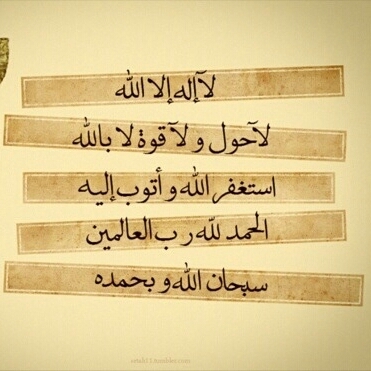 لآ إله إلا الله
لآحول و لآ قوة لا بالله
استغفر الله و أتوب إليه
الحمد لله رب العالمين
سبحان الله و بحمده